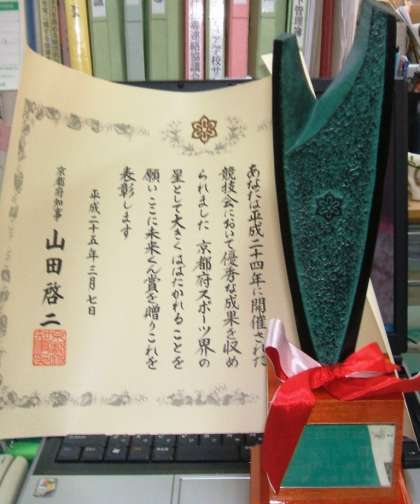 あなたは平成二十四年に開催された
競技会において優秀な成果を収め
られました 京都府スポーツ界の
星として大きくはばたかれることを
願いここに未来くん賞を贈りこれを
表彰します
平成二十五年三月七日
京都府知事 山田啓二